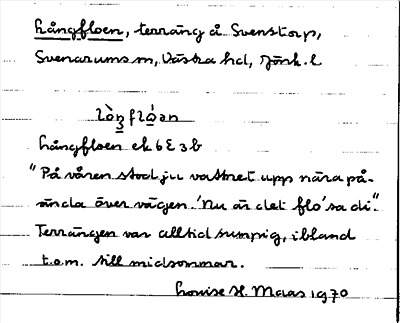 Långfloen, terräng å Svenstorp,
Svenarums sn, Västra hd, Jönk. l
lòŋflóən
Långfloen ek 6E3b
"På våren stod ju vattnet upp nära på-
ända över vägen. 'Nu är det flo' sa di".
Terrängen var alltid sumpig, ibland
t.o.m. till midsommar.
Louise H. Maas 1970